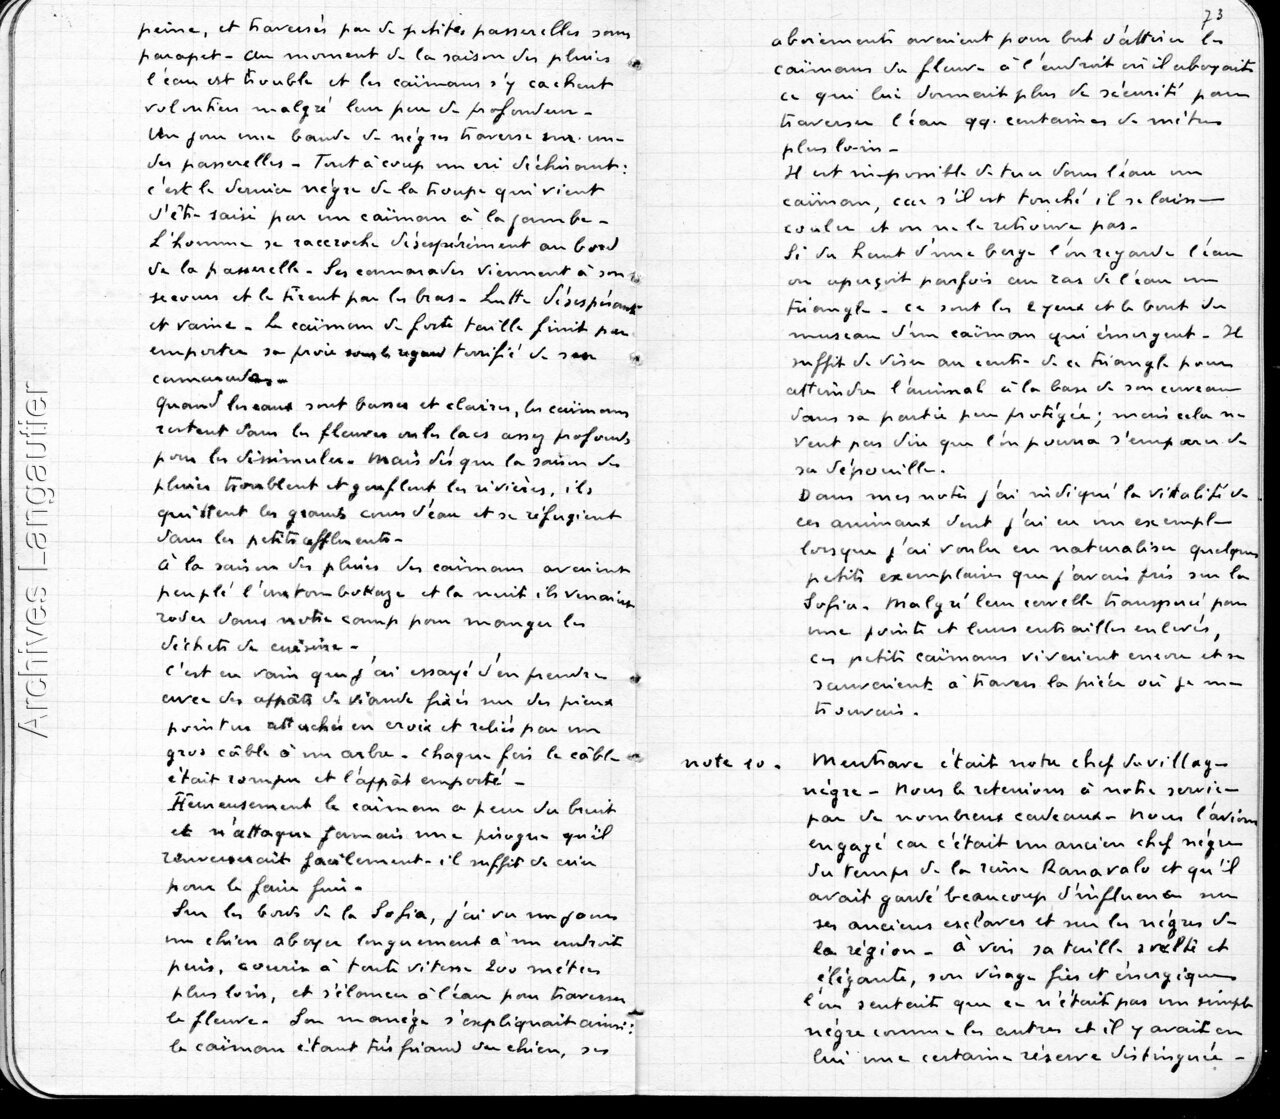 peine, et traversés par de petites passerelles sans
parapet - au moment de la saison des pluies
l'eau est trouble et les caïmans s'y cachent
volontiers malgré leur peu de profondeur -
Un jour une bande de nègres traverse sur une
des passerelles - Tout à coup un cri déchirant :
c'est le dernier nègre de la troupe qui vient
d'être saisi par un caïman à la jambe -
L'homme se raccroche désespérément au bord
de la passerelle - Ses camarades viennent à son
secours et le tirent par les bras - Lutte désespérée
et vaine - Le caïman de forte taille finit par
emporter sa proie sous le regard terrifié de ses
camarades -
Quand les eaux sont basses et claires, les caïmans
restent dans les fleuves ou les lacs assez profonds
pour les dissimuler - Mais dès que la saison des
pluies troublent et gonflent les rivières, ils
quittent les grands cours d'eau et se réfugient
dans les petits affluents -
à la saison des pluies des caïmans avaient
peuplé l' et la nuit ils venaient
roder dans notre camp pour manger les
déchets de cuisine -
C'est en vain que j'ai essayé d'en prendre
avec des appâts de viande fixés sur des pieux
pointus attachés en croix et reliés par un
gros câble à un arbre - Chaque fois le câble
était rompu et l'appât emporté -
Heureusement le caïman a peur du bruit
et n'attaque jamais une pirogue qu'il
renverserait facilement - il suffit de crier
pour le faire fuir -
Sur les bords de la Sofia, j'ai vu un jour
un chien aboyer longuement à un endroit
puis, courir à toute vitesse 200 mètres
plus loin, et s'élancer à l'eau pour traverser
le fleuve - Son manège s'expliquait ainsi :
le caïman étant très friand de chien, ses
73
aboiements avaient pour but d'attirer les
caïmans du fleuve à l'endroit où il aboyait
ce qui lui donnait plus de sécurité pour
traverser l'eau qq. centaines de mètres
plus loin -
Il est impossible de tuer dans l'eau un
caïman, car s'il est touché il se laisse
couler et on ne le retrouve pas -
Si du haut d'une berge l'on regarde l'eau
on aperçoit parfois au ras de l'eau un
triangle - ce sont les 2 yeux et le bout du
museau d'un caïman qui émergent - Il
suffit de viser au centre de ce triangle pour
atteindre l'animal à la base de son cerveau
dans sa partie peu protégée ; mais cela ne
veut pas dire que l'on pourra s'emparer de
sa dépouille -
Dans mes notes j'ai indiqué la vitalité de
ces animaux dont j'ai eu un exemple
lorsque j'ai voulu en naturaliser quelques
petits exemplaires que j'avais pris sur la
Sofia - Malgré leur cervelle transpercé par
une pointe et leurs entrailles enlevés,
ces petits caïmans vivaient encore et se
sauvaient à travers la pièce où je me
trouvais .
note 10 - Mentiave était notre chef de village
nègre - Nous le retenions à notre service
par de nombreux cadeaux - Nous l'avions
engagé car c'était un ancien chef nègre
du temps de la reine Ranavalo et qu'il
avait gardé beaucoup d'influence sur
ses anciens esclaves et sur les nègres de
la région - à voir sa taille svelte et
élégante, son visage fier et énergique
l'on sentait que ce n'était pas un simple
nègre comme les autres et il y avait en
lui une certaine réserve distinguée -
Archives Langautier